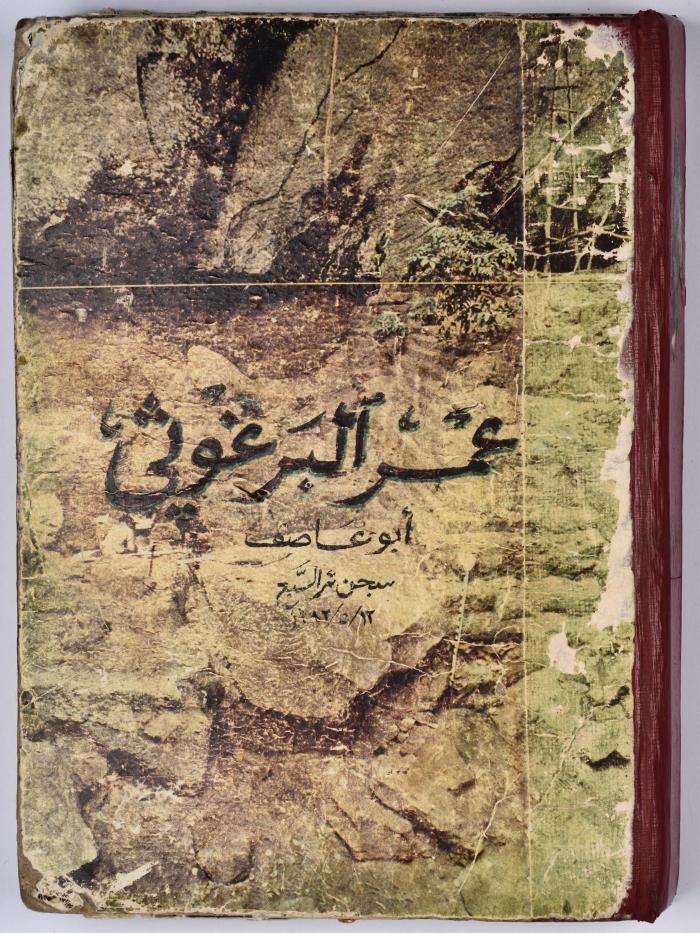 عمر البرغوثي
أبو عاصف
سجن بئر السبع
١٩٨٢/٥/١٢